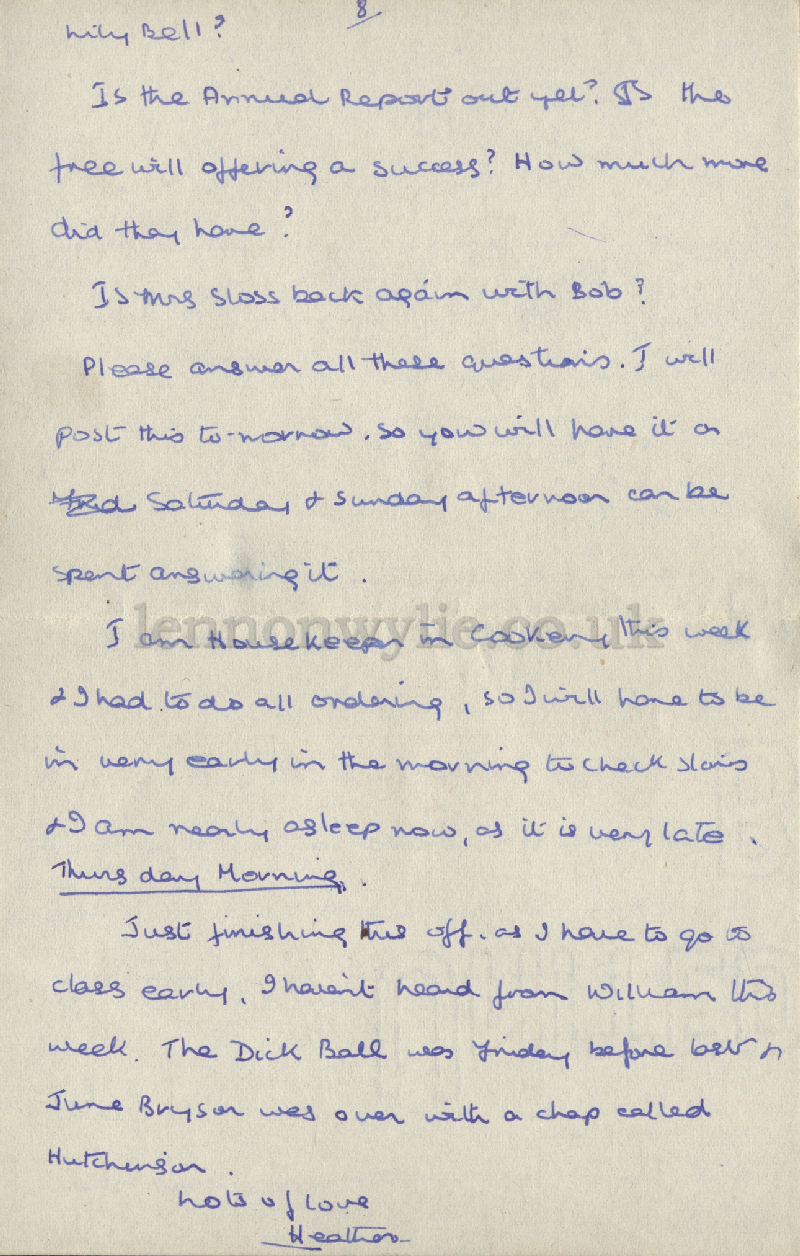 8
Lily Bell?
Is the Annual Report out yet? Is the
free will offering a success? How much more
did they have?
Is Mrs Sloss back again with Bob?
Please answer all these questions. I will
post this to-morrow. so you will have it on
Saturday & Sunday afternoon can be
spent answering it.
lennonwylie.co.uk
I am Housekeeper in Cookery this week
& I had to do all ordering, so I will have to be
in very early in the morning to check stores
& I am nearly asleep now, as it is very late.
Thursday Morning.
Just finishing this off. as I have to go to
class early. I haven't heard from William this
week. The Dick Ball was Friday before last &
June Bryson was over with a chap called
Hutchinson.
Lots of love
Heather